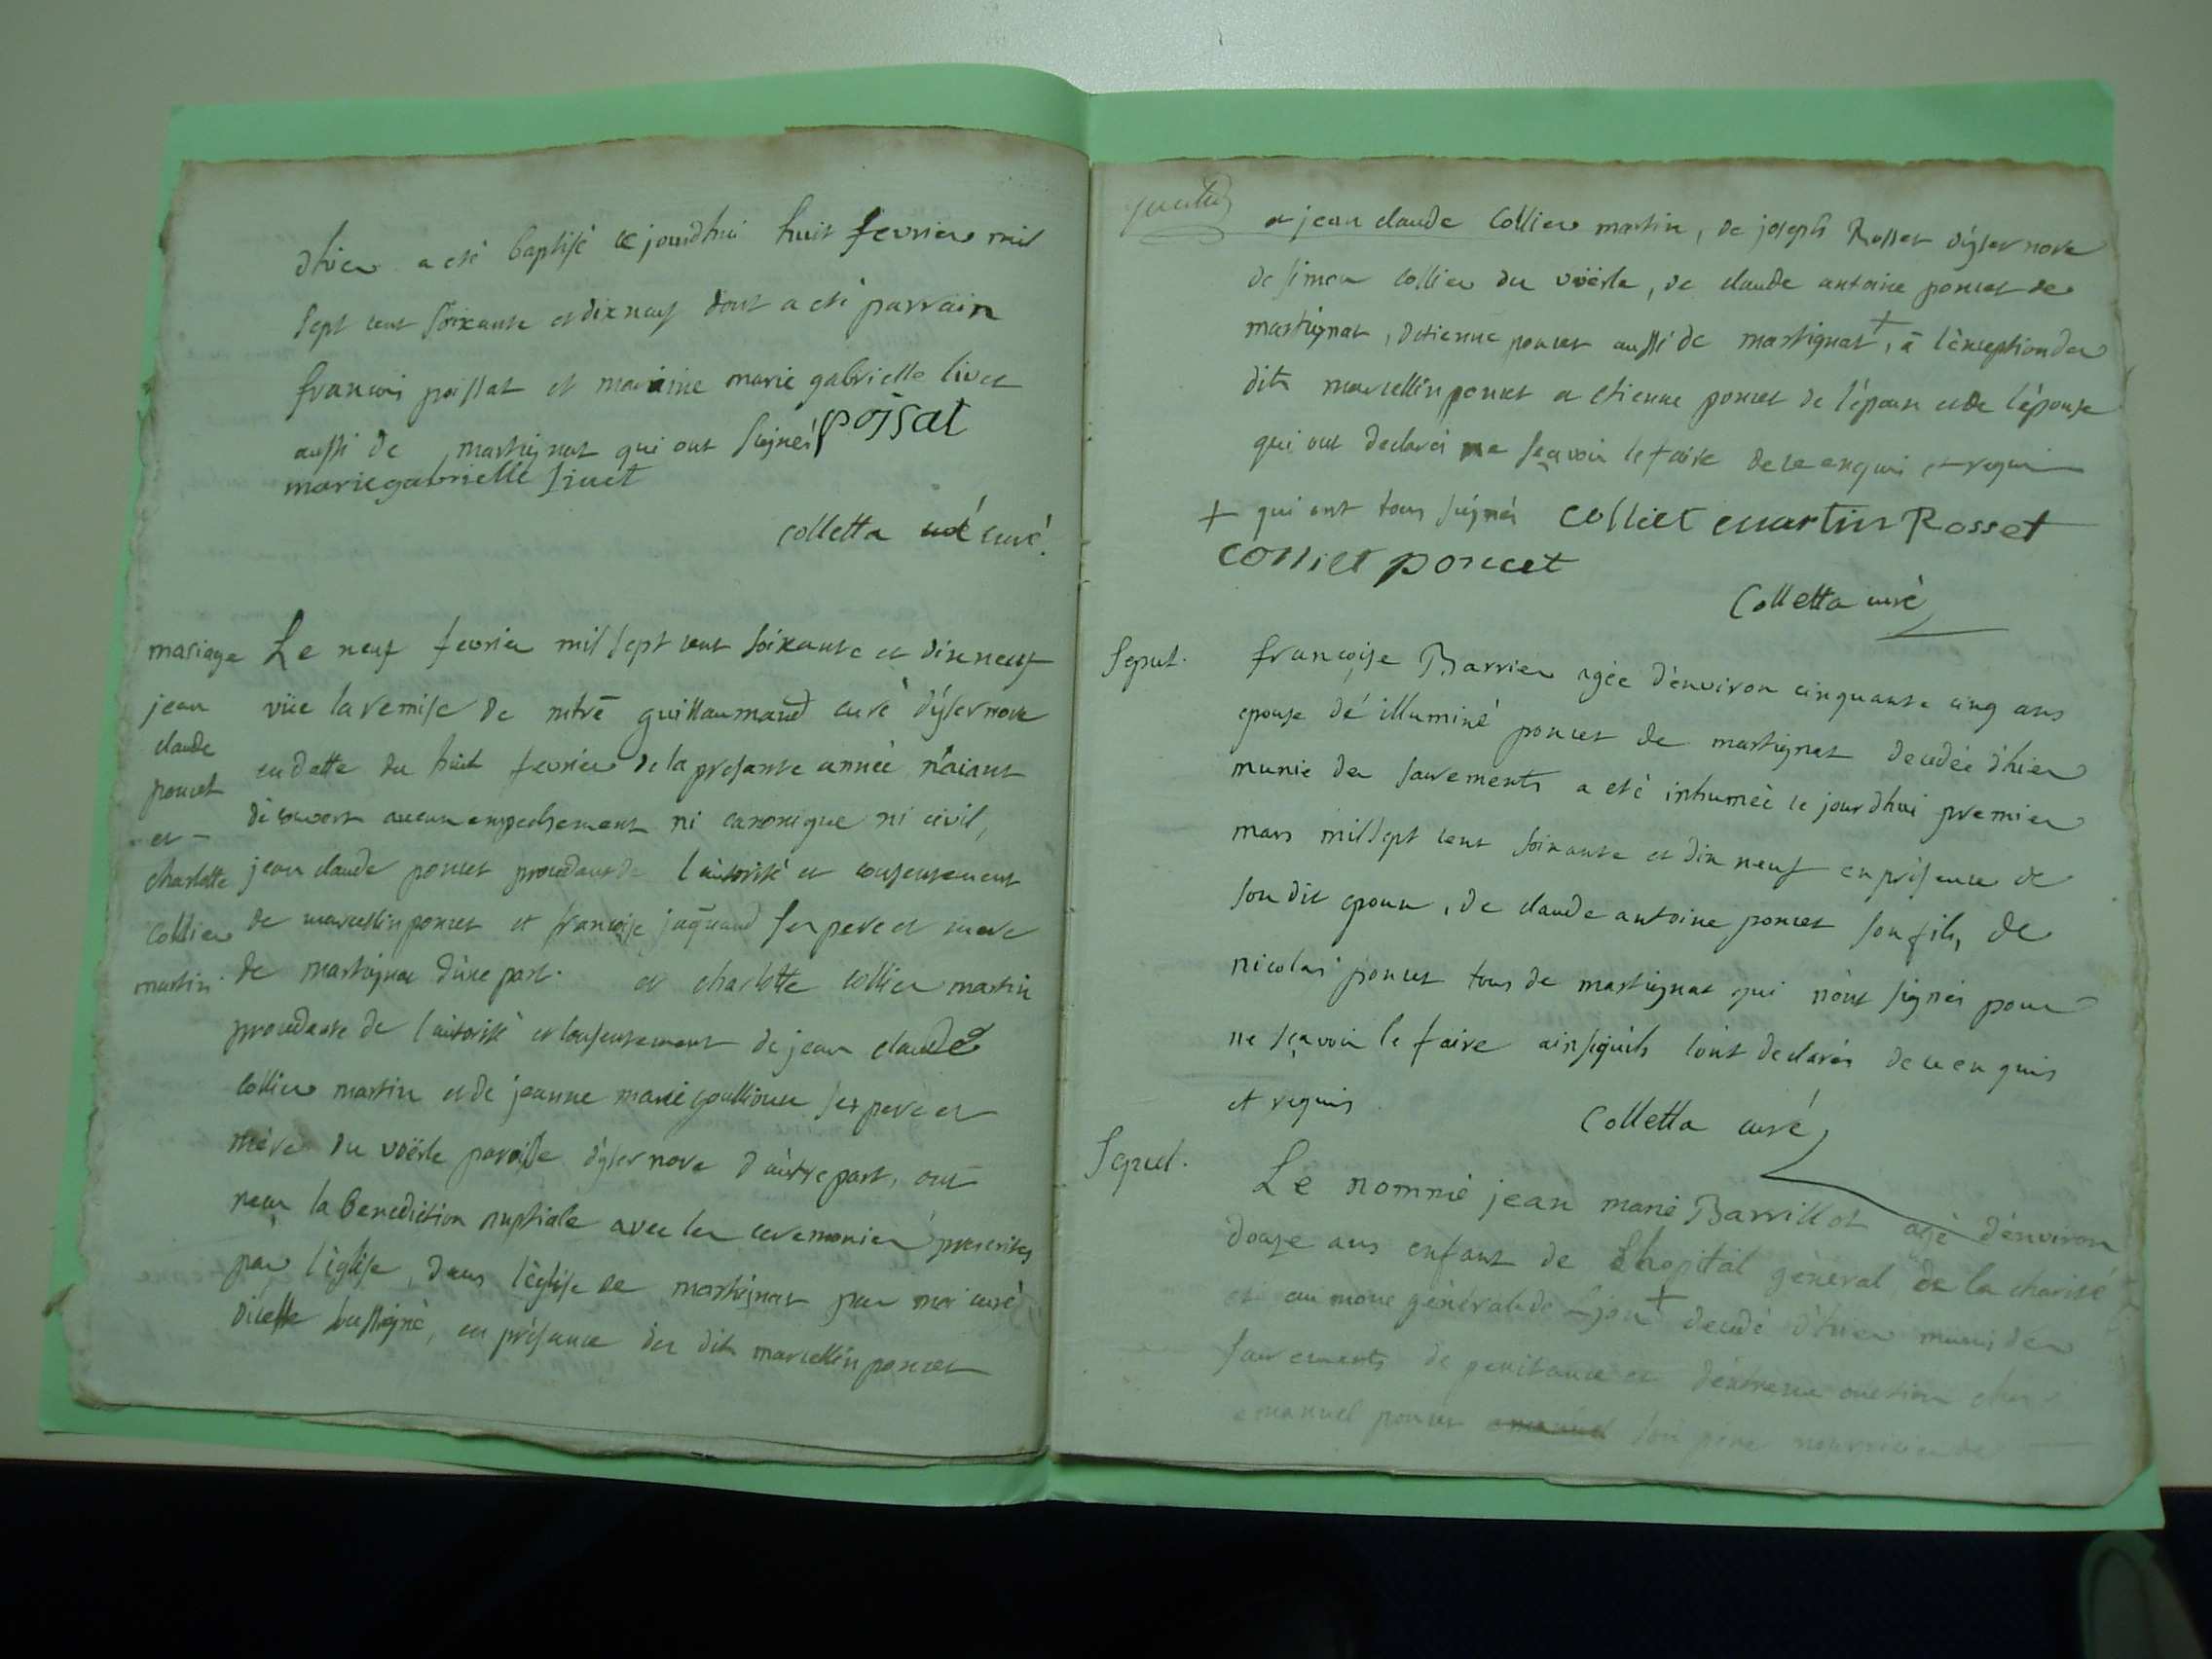 dhier a eté baptisé ce jourdhui huit fevrier mil
sept cent soixante et dix neuf dont a eté parrain
francois poissat et maraine marie gabrielle livet
aussi de martignat qui ont signés poissat
marie gabrielle livet
colletta curé.
mariage
jean
claude
poncet
et
charlotte
collier
martin
Le neuf fevrier mil sept cent soixante et dix neuf
vüe la remise de guillaumaud curé d'ysernore
en datte du huit fevrier de la presante année n'aiant
découvert aucun empechement ni canonique ni civil,
jean claude poncet procedant de l'autorité et consentement
de marcellin poncet et francoise jaquand ses pere et mere
de martignat d'une part. et charlotte collier martin
procedante de l'autorité et consentement de jean claude
collier martin et de jeanne marie ses pere et
mère du voërle paroisse d'ysernore d'autre part, ont
reçu la benediction nuptiale avec les ceremonies prescrites
par l'église, dans l'église de martignat par moi curé
dicelle sussigné, en présance des dits marcellin poncet
et jean claude collier martin, de joseph Rosset d'ysernore
de simon collier du voërle, de claude antoine poncet de
martignat, detienne poncet aussi de martignat +, à l'exception des
dits marcellin poncet et etienne poncet de l'époux et de l'épouse
qui ont declarés ne sçavoir le faire de ce enquis et requis
+ qui ont tous signés colliet martin Rosset
colliet poncet
Colletta curé
sepul.
francoise Barrier agée d'environ cinquante cinq ans
epouse de illuminé poncet de martignat decedée d'hier
munie des sacrements a eté inhumée ce jourdhui premier
mars mil sept cent soixante et dix neuf en présence de
son dit epoux, de claude antoine poncet son fils, de
nicolas poncet tous de martignat qui n'ont signés pour
ne sçavoir le faire ainsi qu'ils l'ont declarés de ce enquis
et requis
Colletta curé
Sepul.
Le nommé jean marie Barrillot agé d'environ
douze ans enfant de l'hopital général de la charité
et aumone générale de Lyon + decedé d'hier munis des
sacrements de penitance et d'extreme onction chez
emanuel poncet son père nourricier de